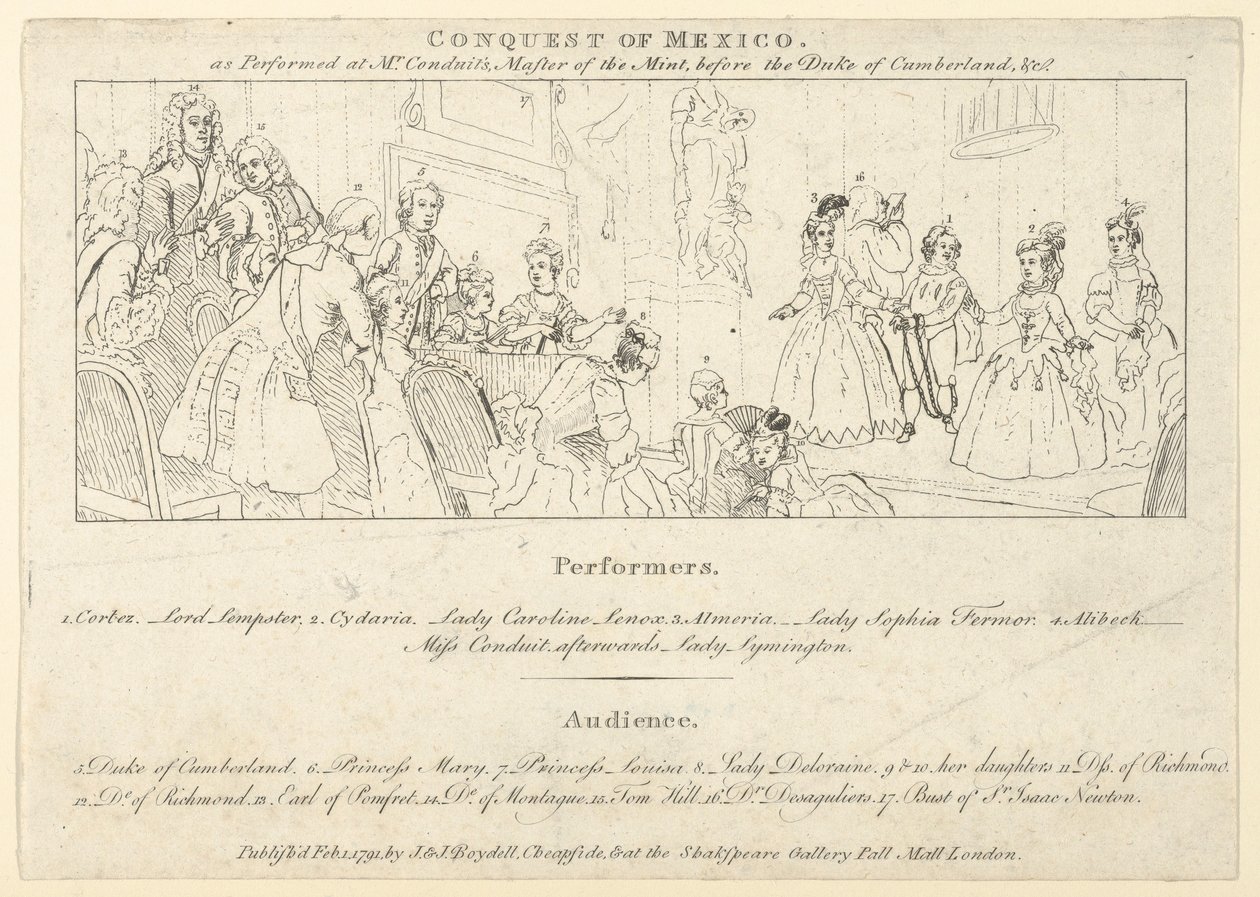 CONQUEST OF MEXICO.
as Performed at Mr. Conduit's, Maſter of the Mint, before the Duke of Cumberland, &c.
14
15
13
17
12
5
7
6
11
8
3
16
1
2
4
9
10
Performers.
1. Cortez. _Lord Lempster. 2. Cydaria. _Lady Caroline Lenox. 3. Almeria. _ _Lady Sophia Fermor. 4. Alibech.____
Miſs Conduit. afterwards_Lady_Lymington.
Audience.
5. Duke of Cumberland. 6. Princeſs Mary. 7. Princeſs_Louisa. 8. _Lady_Deloraine. 9 & 10. her daughters 11_Dſs. of Richmond.
12. De. of Richmond. 13. Earl of Pomfret. 14. De. of Montague. 15. Tom Hill. 16. Dr. Desaguliers. 17. Bust of Sr. Isaac Newton.
Publiſh'd Feb. 1. 1791, by J. & J. Boydell, Cheapſide, & at the Shakſpeare Gallery Pall Mall London.